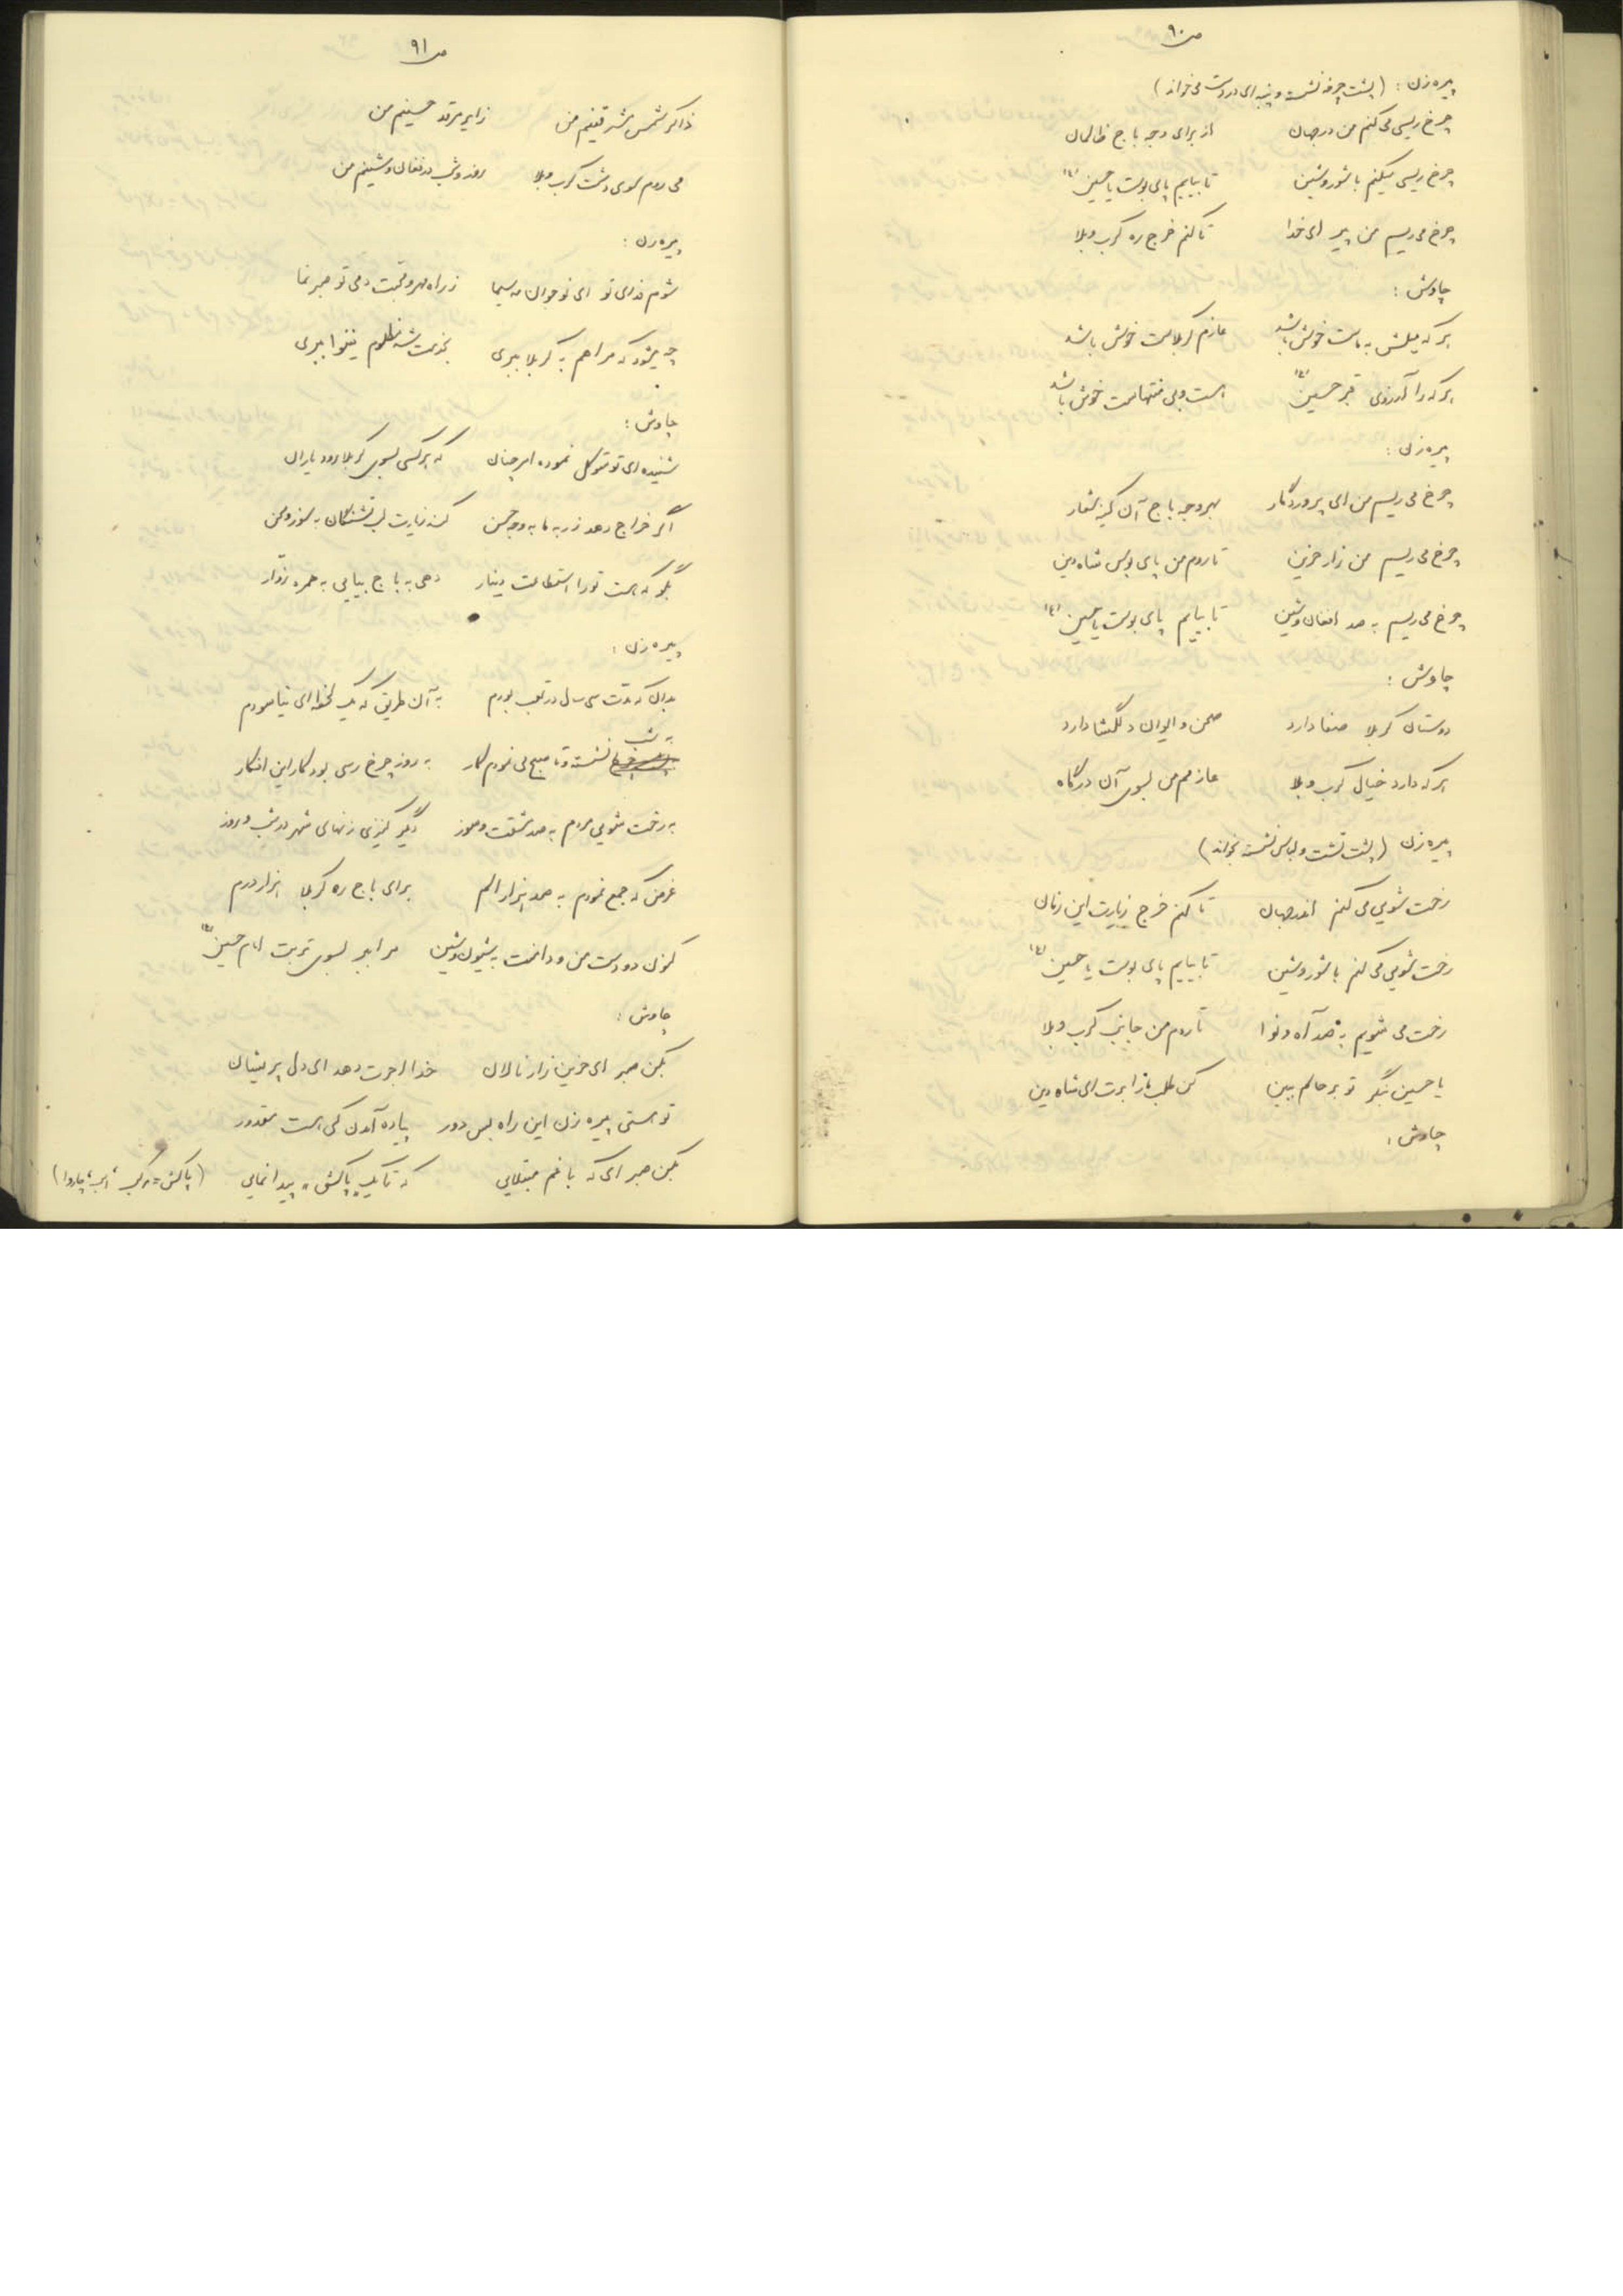 ص ۹۰
پیره زن : (پشت چرخه نشسته و پنبه ای در دست می خواند)
چرخ ریسی می کنم من در جهان از برای وجه باج ظالمان
چرخ ریسی میکنم با شور و شین تا بیایم پای بوست یا حسین (ع)
چرخ می ریسم من پیر ای خدا تا کنم خرج ره کرب و بلا
چاوش :
هر که میلش به ماست خوش باشد عازم کربلاست خوش باشد
هر که را آرزوی قبر حسین (ع) هست و بی منتهاست خوش باشد
پیره زن :
چرخ می ریسم من ای پروردگار بهر وجه باج آن
چرخ می ریسم من زار حزین تا روم من پای بوس شاه دین
چرخ می ریسم به صد افغان و شین تا بیایم پای بوست یا حسین (ع)
چاوش :
دوستان کربلا صفا دارد صحن و ایوان دلگشا دارد
هر که دارد خیال کرب و بلا عازمم من بسوی آن درگاه
پیره زن (پشت تشت و لباس نشسته بخواند)
رخت شویی می کنم اندر جهان تا کنم خرج زیارت این زمان
رخت شویی می کنم با شور و شین تا بیایم پای بوست یا حسین (ع)
رخت می شویم به صد آه و نوا تا روم من جانب کرب و بلا
یا حسین بنگر تو بر حالم ببین کن طلب مازا برت ای شاه دین
چاوش :
ص ۹۱
ذاکر شمس مشرقینم من زایر مرقد حسینم من
می روم سوی دشت کرب و بلا روز و شب در فغان و شینم من
پیره زن :
شوم فدای تو ای نوجوان مه سیما ز راه مهر و محبت دمی تو صبر نما
چه میشود که مرا هم به کربلا ببری بخدمت شه مظلوم نینوا ببری
چاوش :
شنیده ای تو متوکل نموده امر چنان که هر کسی بسوی کربلا رود یاران
اگر خراج دهد زر به ما به وجه حسن کند زیارت لب تشنگان به
بگو که هست تو را استطاعت دینار دهی به باج بیایی به همره زوار
پیره زن :
بدان که مدت سی سال در تعب بودم به آن طریق که یک لحظه ای نیاسودم
به شب نشسته و تا صبح می نمودم کار به روز چرخ رسی بود کار این افکار
به رخت شویی مردم به صد مشقت و سوز دگر کنیزی زنهای شهر در شب و روز
غرض که جمع نمودم به صد هزار الم برای باج ره کربلا هزار درم
کنون دو دست من و دامنت به شیون و شین مرا ببر بسوی تربت امام حسین (ع)
چاوش :
بکن صبر ای حزین زار نالان خدا اجرت دهد ای دل پریشان
تو هستی پیره زن این راه بس دور پیاده آمدن کی هست مقدور
بکن صبر ای که با غم مبتلایی که تا یک "پاکش" پیدا نمایی (پاکش = مرکب، اسب، چاروا)